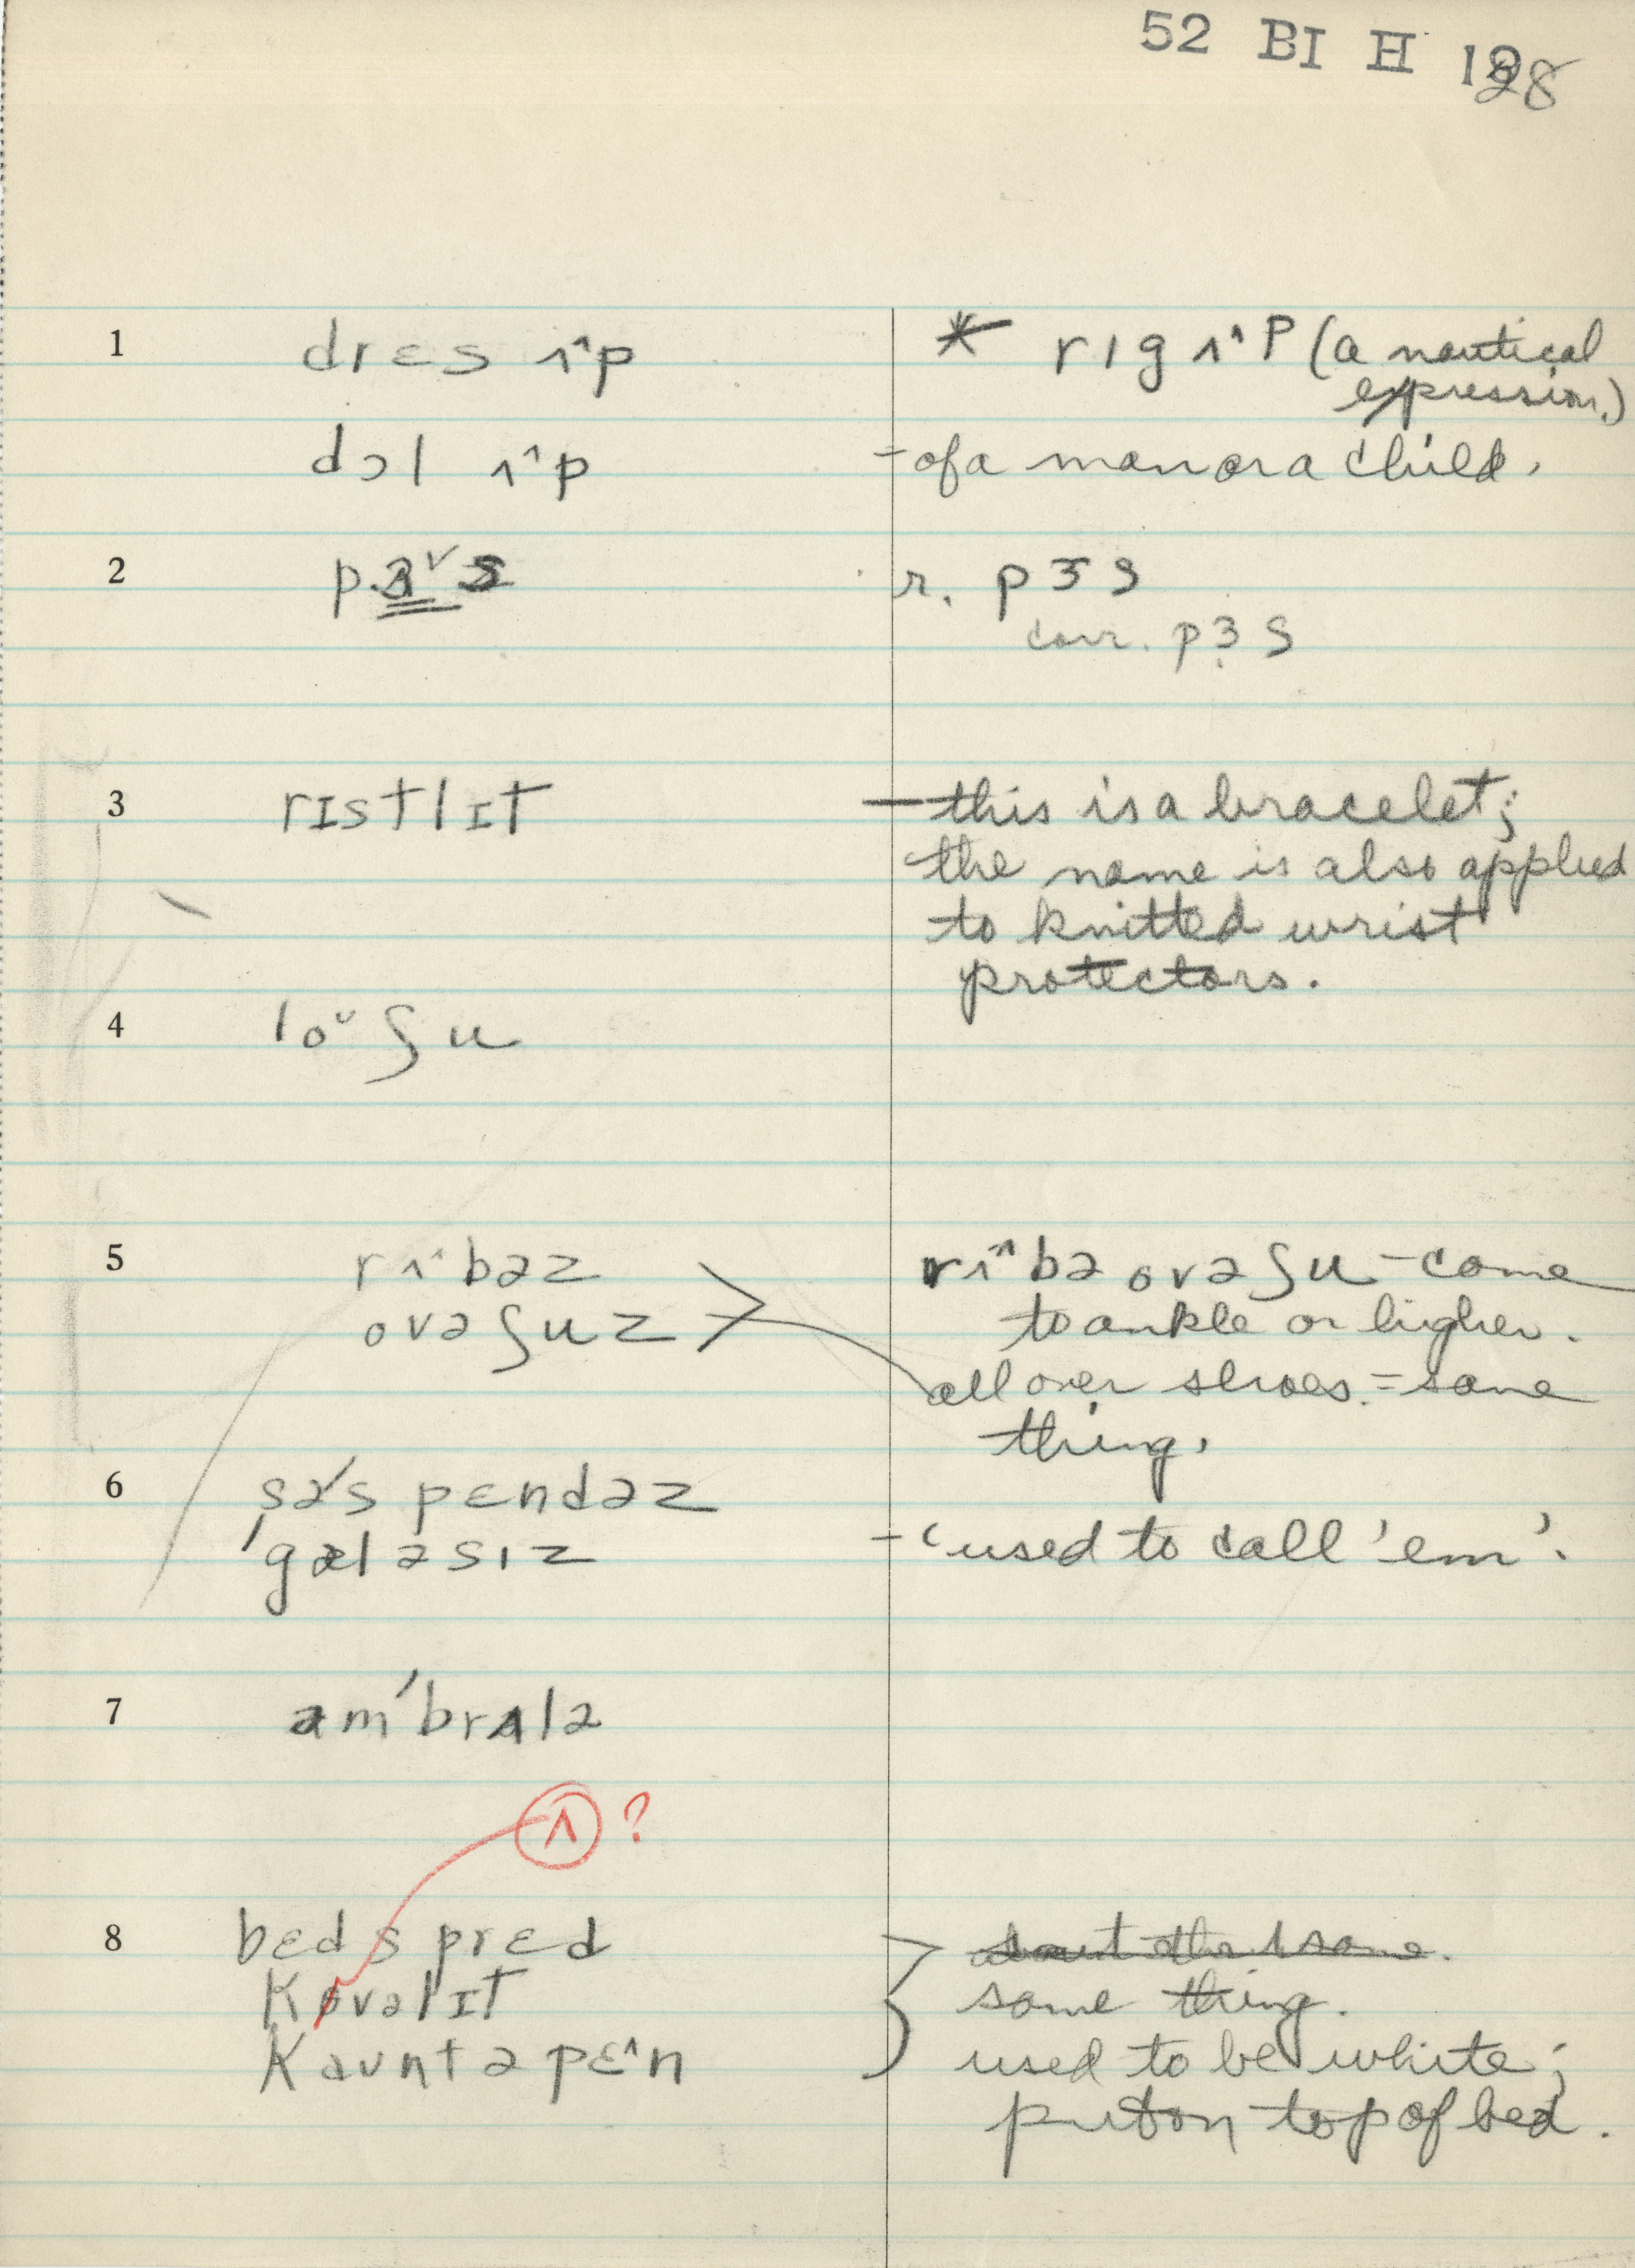 52 BI H 128
1 drɛs ʌ˄p * rɪg ʌ˄p (a nautical
expression.)
dɔl ʌ˄p - of a man or a child.
2 r. pɜs
corr. pɜ̣s
3 rɪstlɪt — this is a bracelet;
the name is also applied
to knitted wrist
protectors.
4 lo˅ʃu
5 rʌ˄bəz rʌ˄bə ovəʃu - come
ovəʃuz to ankle or higher.
all over shoes. = same
thing.
6 səˊspɛndəz
ˈgæləsɪz - 'used to call 'em'.
7 amˊbrʌlə
ʌ ?
8 bɛdsprɛd
kovəlɪt same thing.
kauntəpɛ˄n used to be white;
put on top of bed.